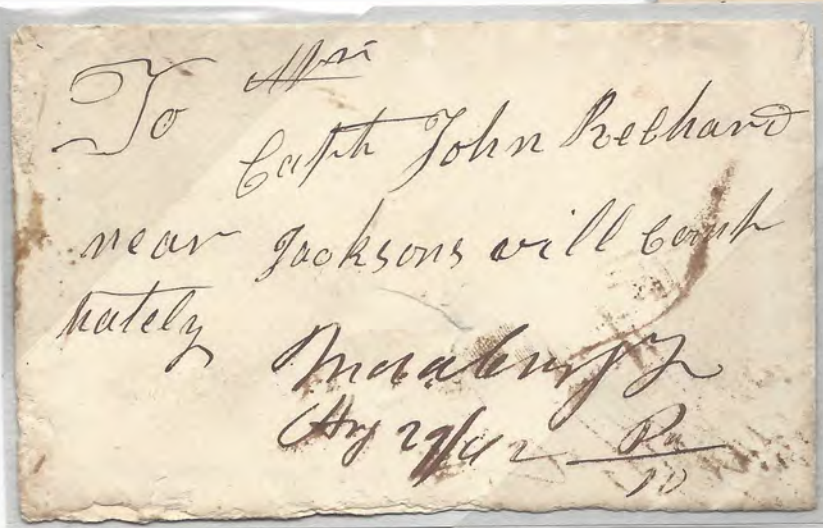 To Mrs
Capt John Rechard
near Jacksons will Cours
hately
Aug 29/42 Pa
10